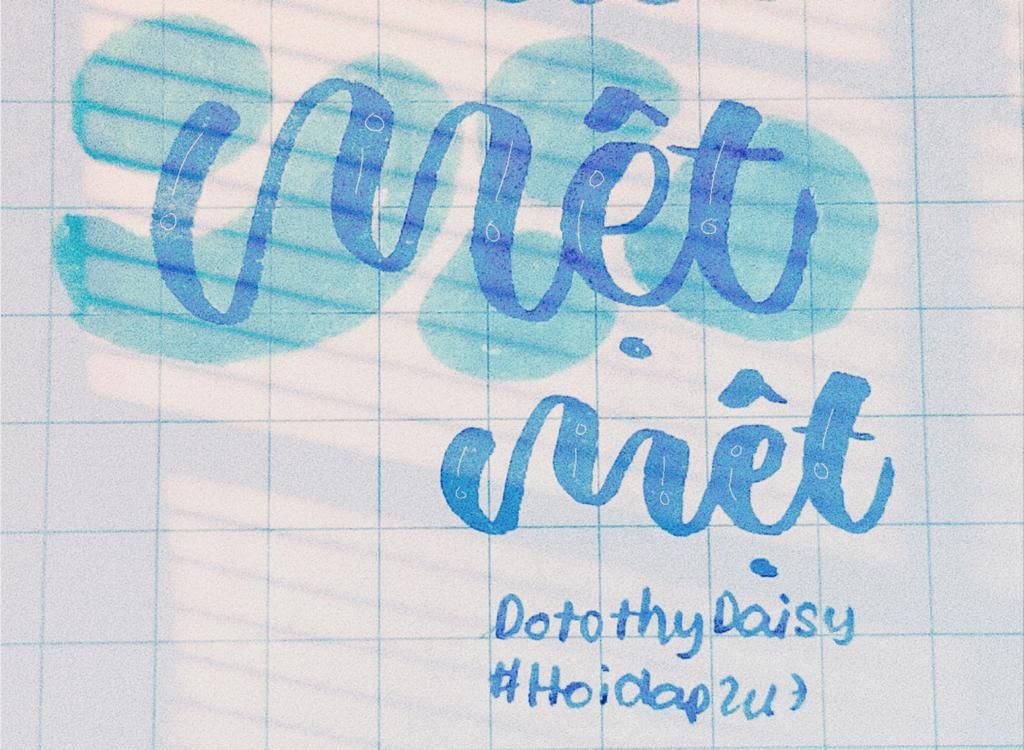 Mệt
mệt
DotothyDaisy
#Hoidap2u:)